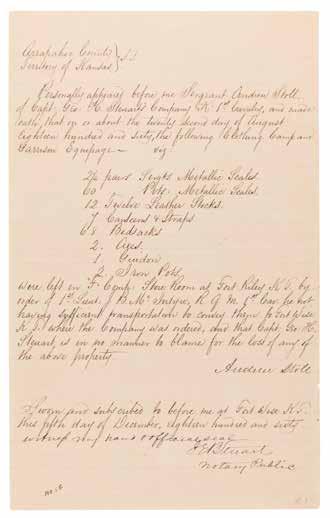 Arapahoe County } S.S.
Territory of Kansas }
Personally appears before me Sergeant Andrew Stoll
of Capt. Geo. H. Steuart's Company K 1st Cavalry, and made
oath, that on or about the twenty second day of August
eighteen hundred and sixty, the following Clothing Camp and
Garrison Equipage — viz
26 pairs Sergts Metallic Scales.
60 Pvts. Metallic Scales.
12 Twelve Leather Stocks.
7 Canteens & Straps
68 Bedsacks
2. Axes.
1. Guidon
2. Iron Pots.
were left in F. Comp. Store Room at Fort Riley K.T. by
order of 1st Lieut. J. B. McIntyre, R. Q. M. 1st Cav. he not
having sufficient transportation to convey them to Fort Wise
K.T. where the Company was ordered, and that Capt. Geo. H.
Steuart, is in no manner to blame for the loss of any of
the above property
Andrew Stoll
Sworn and subscribed to before me at Fort Wise K.T.
this fifth day of December, eighteen hundred and sixty
witness my hand & official seal
Steuart
Notary Public